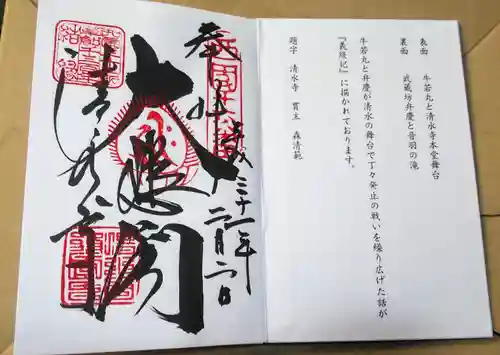 表面　牛若丸と清水寺本堂舞台
裏面　武蔵坊弁慶と音羽の滝
牛若丸と弁慶が清水の舞台で丁々発止の戦いを繰り広げた話が
『義経記』に描かれております。
題字　清水寺　貫主　森清範
奉拝
平成三十一年
二月二日
大悲閣
清水寺